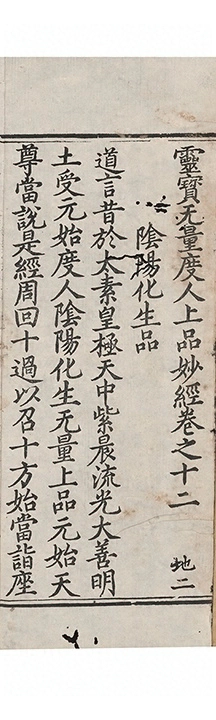 靈寶无量度人上品妙經卷之十二 地二
陰陽化生品
道言昔於太素皇極天中紫晨流光大善明
土受元始度人陰陽化生无量上品元始天
尊當說是經周回十過以召十方始當詣座